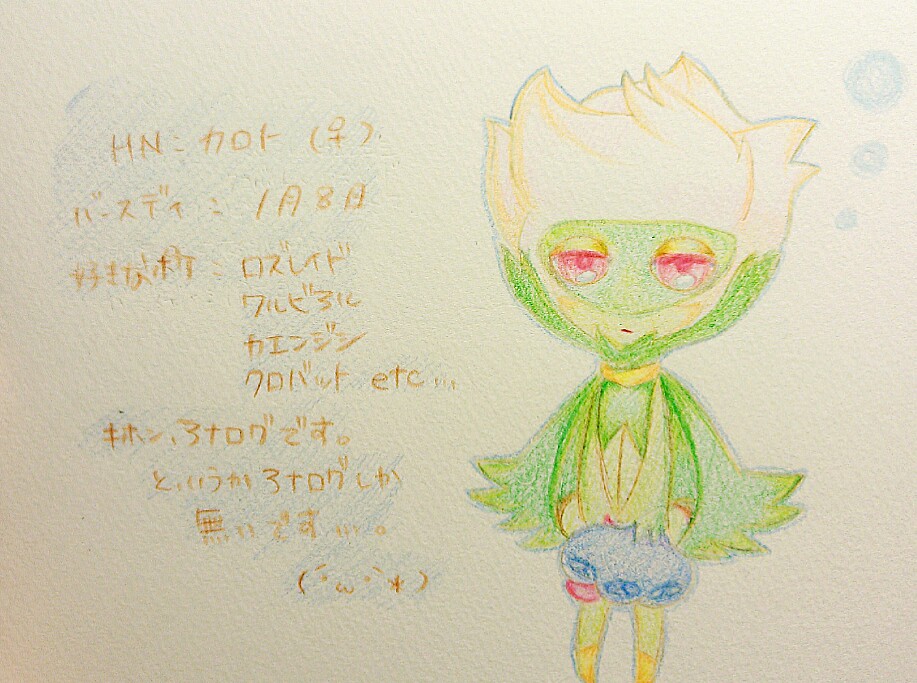 HN: カロト (♀)
バースディ: 1月8日
好きなポケ: ロズレイド
ワルビアル
カエンジシ
クロバット etc...
キホン、アナログです。
というかアナログしか
無いです...。
(´･ω･`*)